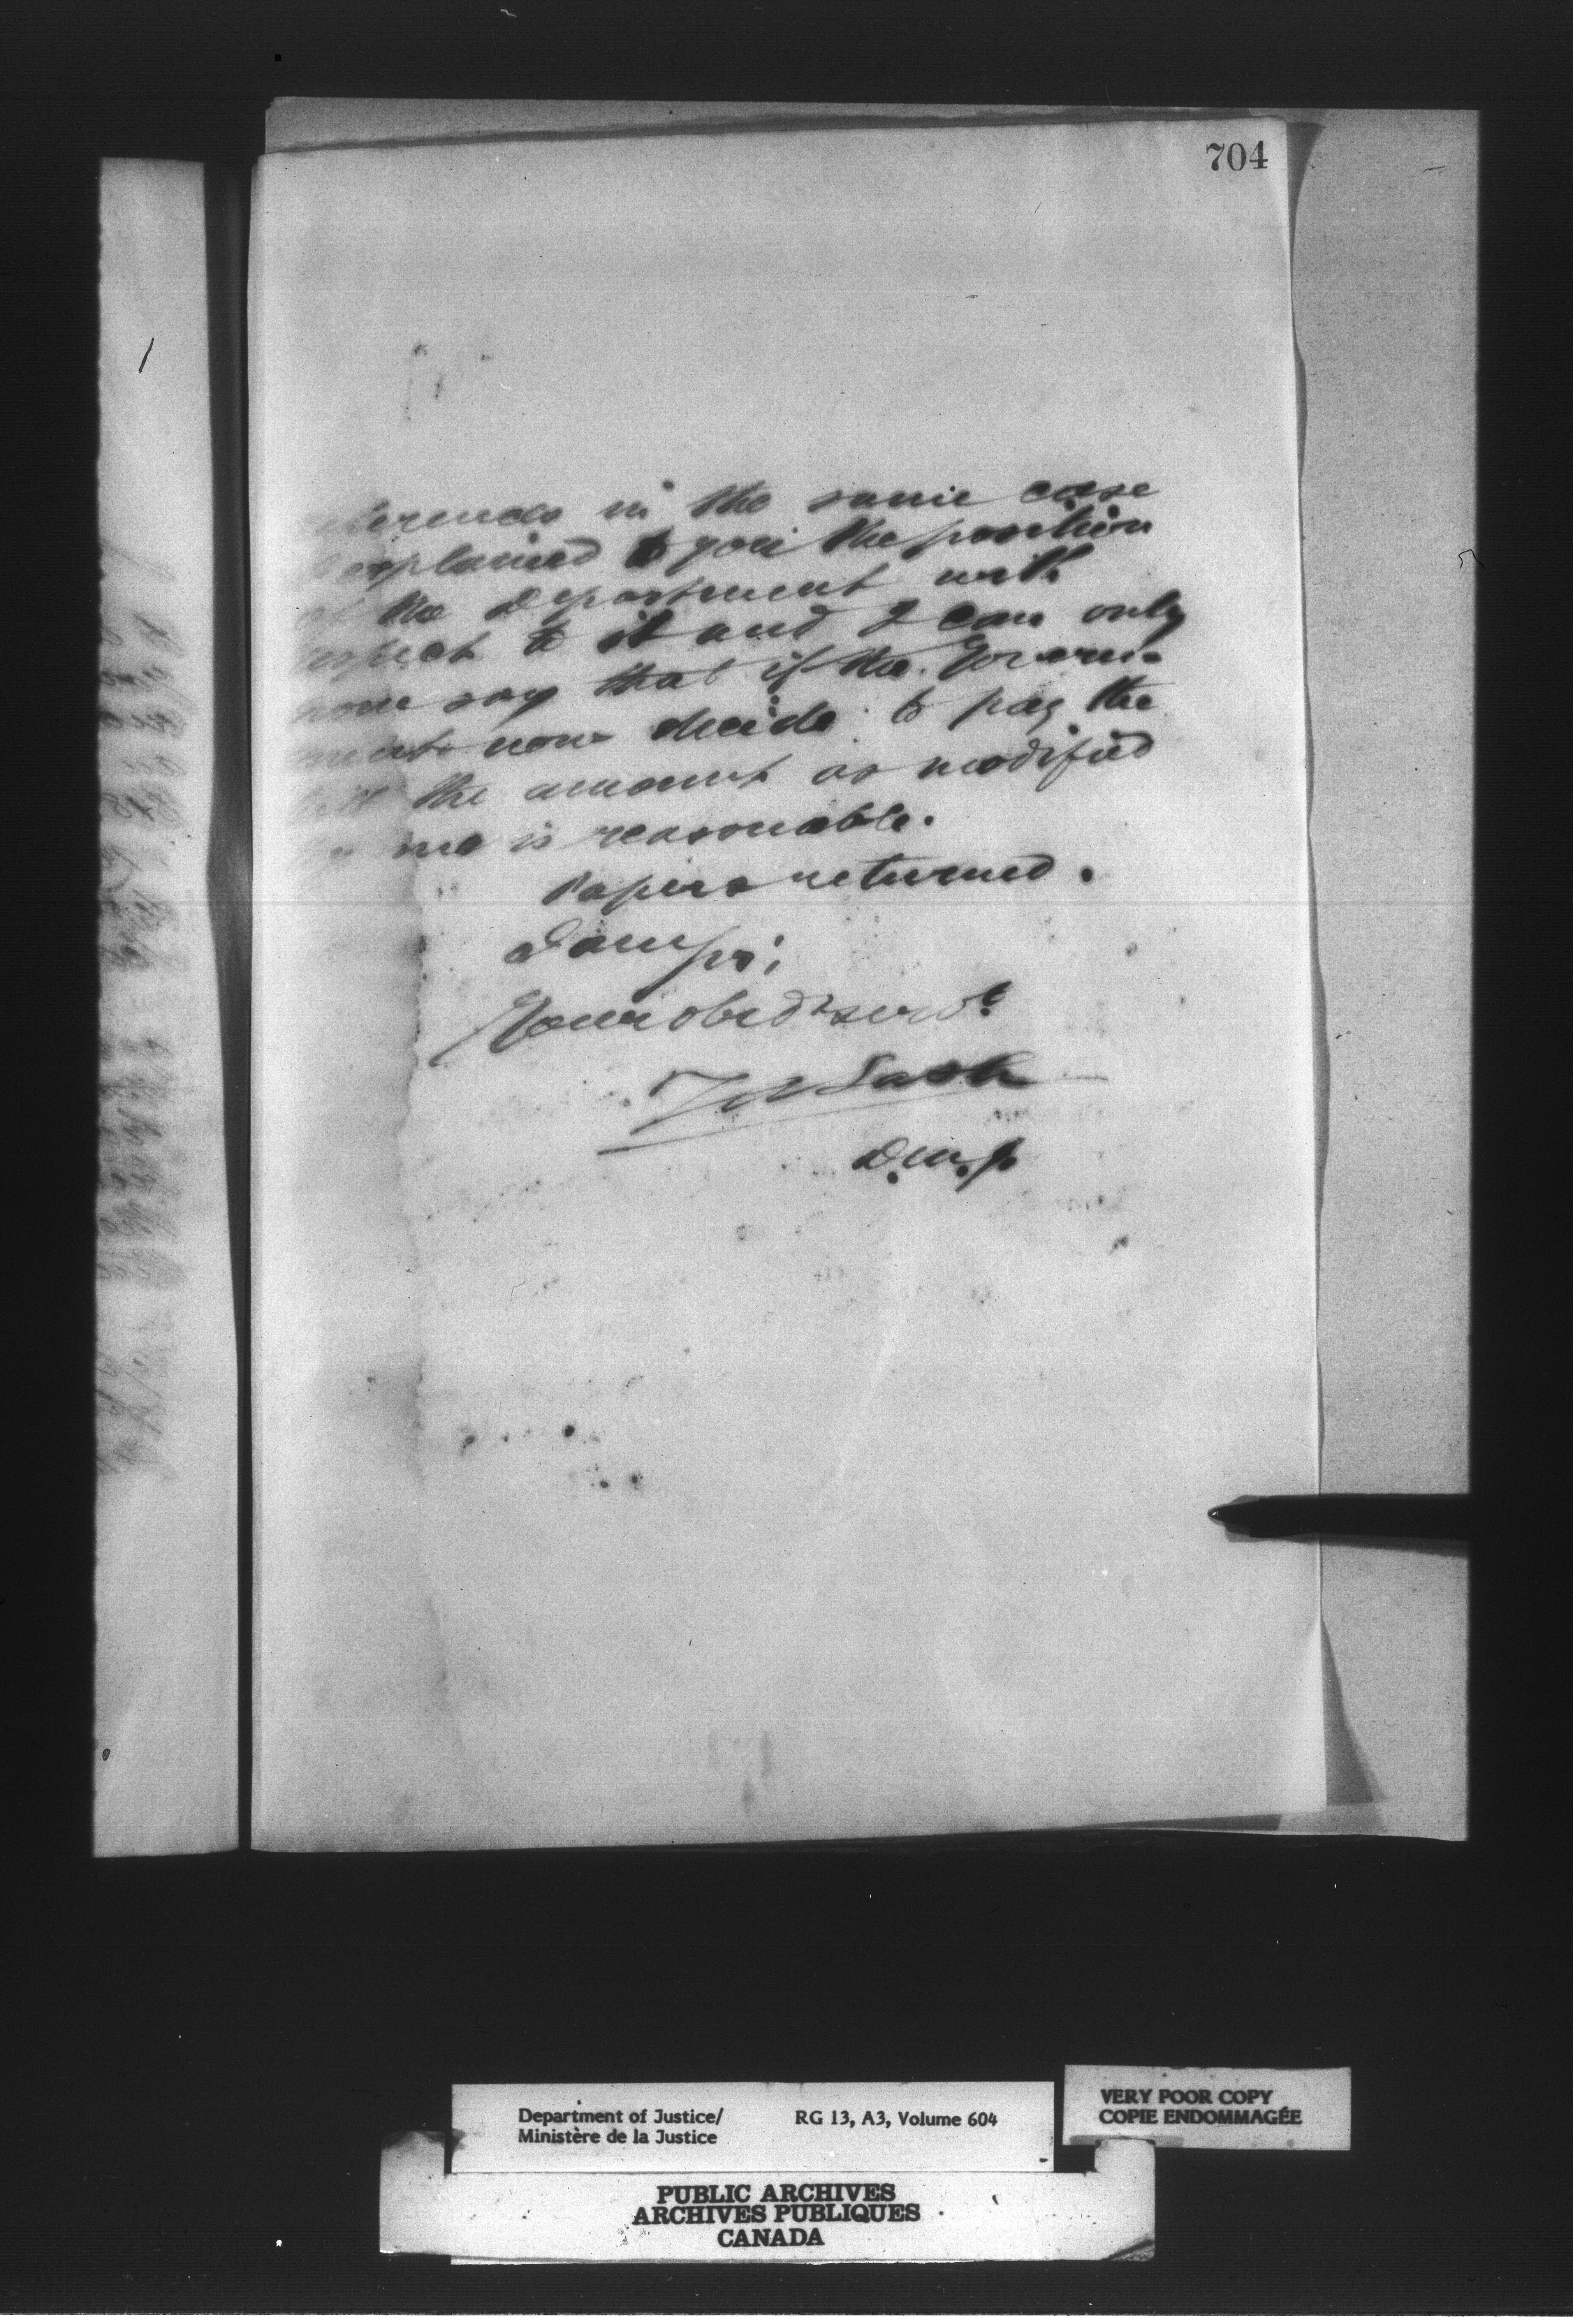 704
references in the same case
I explained to you the position
of the Department with
respect to it and I can only
now say that if the Govern-
ment now decide to pay the
bill the amount as modified
by me is reasonable.
Papers returned.
I am sir,
Your obedt servt
Z A Lash
D.M.J.
Department of Justice/
Ministère de la Justice
RG 13, A3, Volume 604
VERY POOR COPY
COPIE ENDOMMAGÉE
PUBLIC ARCHIVES
ARCHIVES PUBLIQUES
CANADA